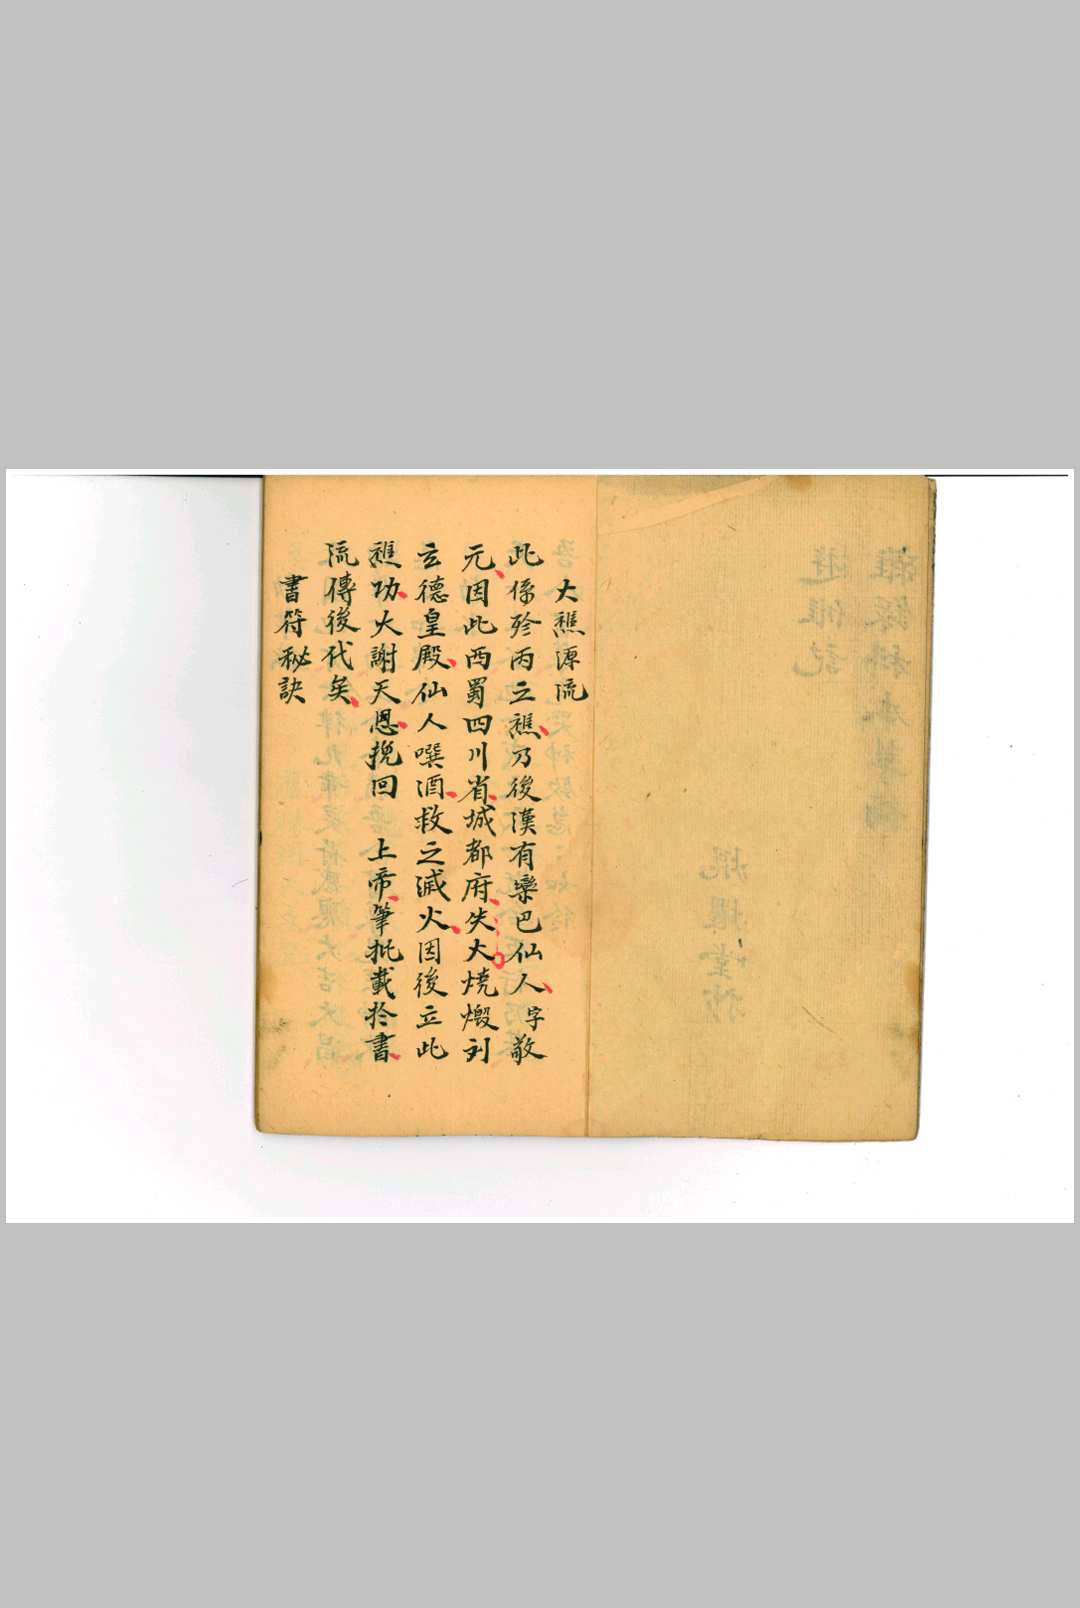 大醮源流
此係殄丙之醮乃後漢有欒巴仙人字敬
元因此西蜀四川省城都府失火燒燬到
玄德皇殿仙人噀酒救之滅火因後立此
醮功火謝天恩挽回　上帝筆批載於書
流傳後代矣
書符秘訣